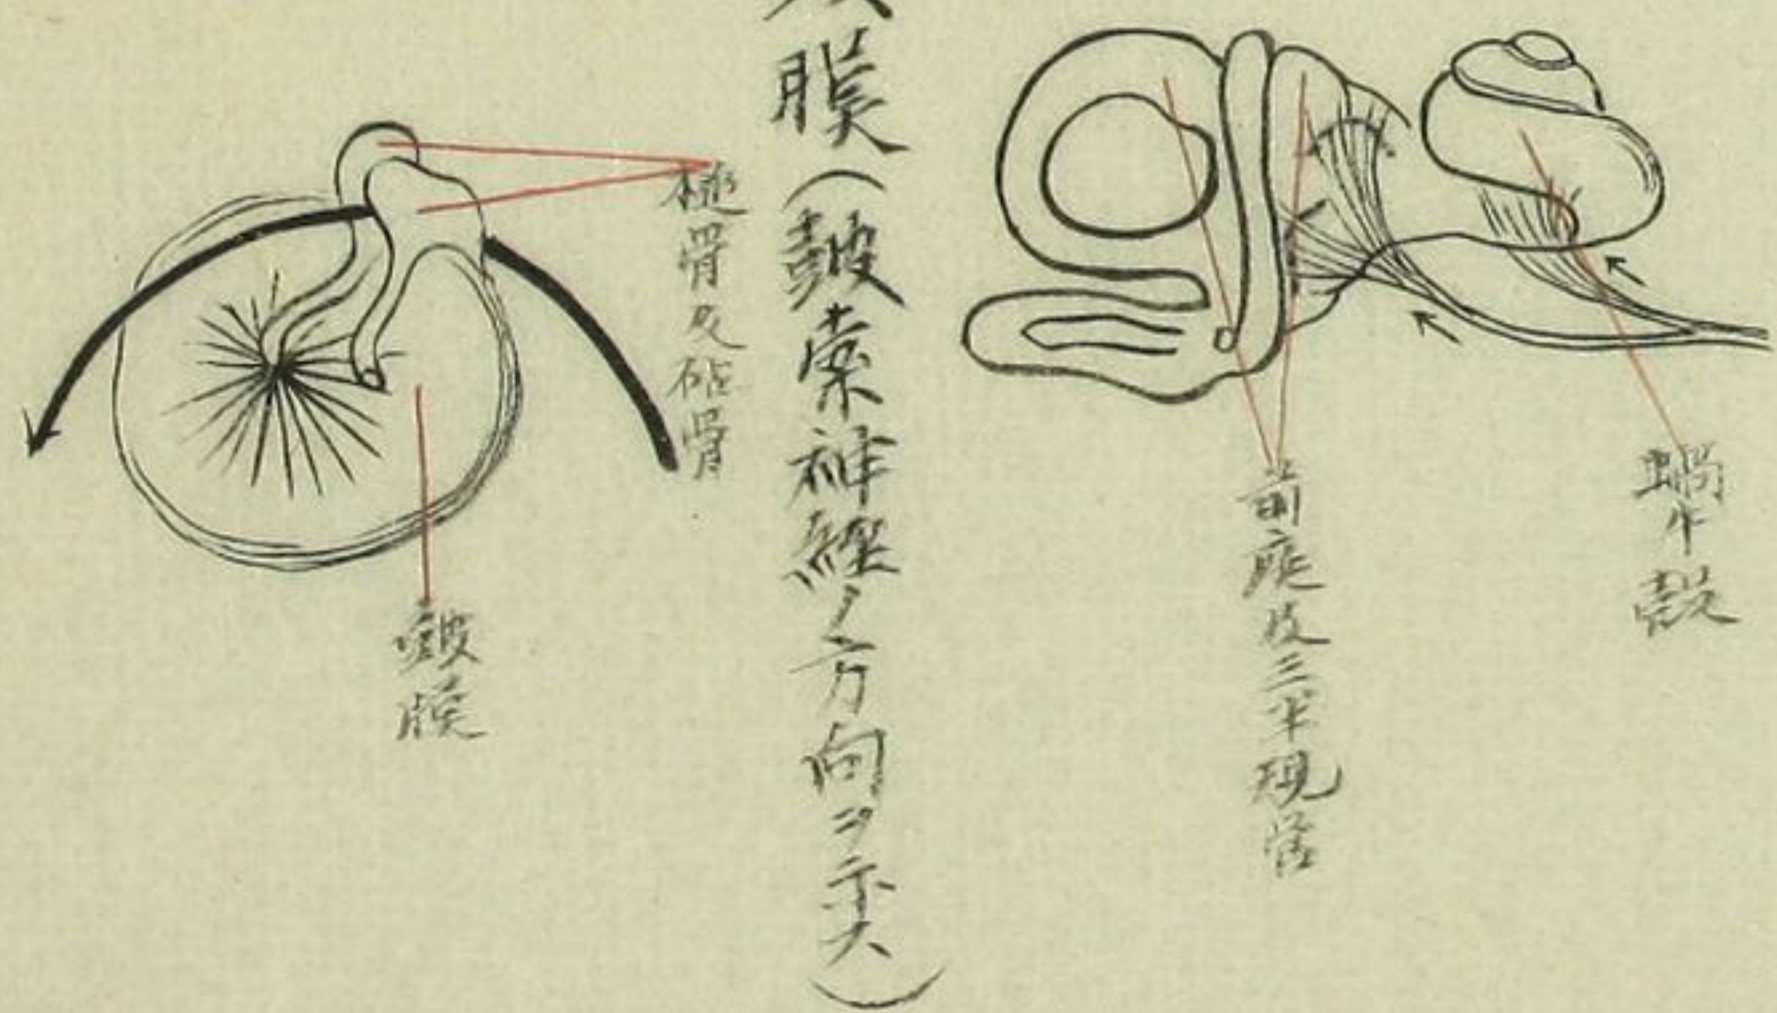 蝸牛殻
前庭及三半規管
膜(皷索神経ノ方向ヲ示ス)
槌骨及砧骨
皷膜